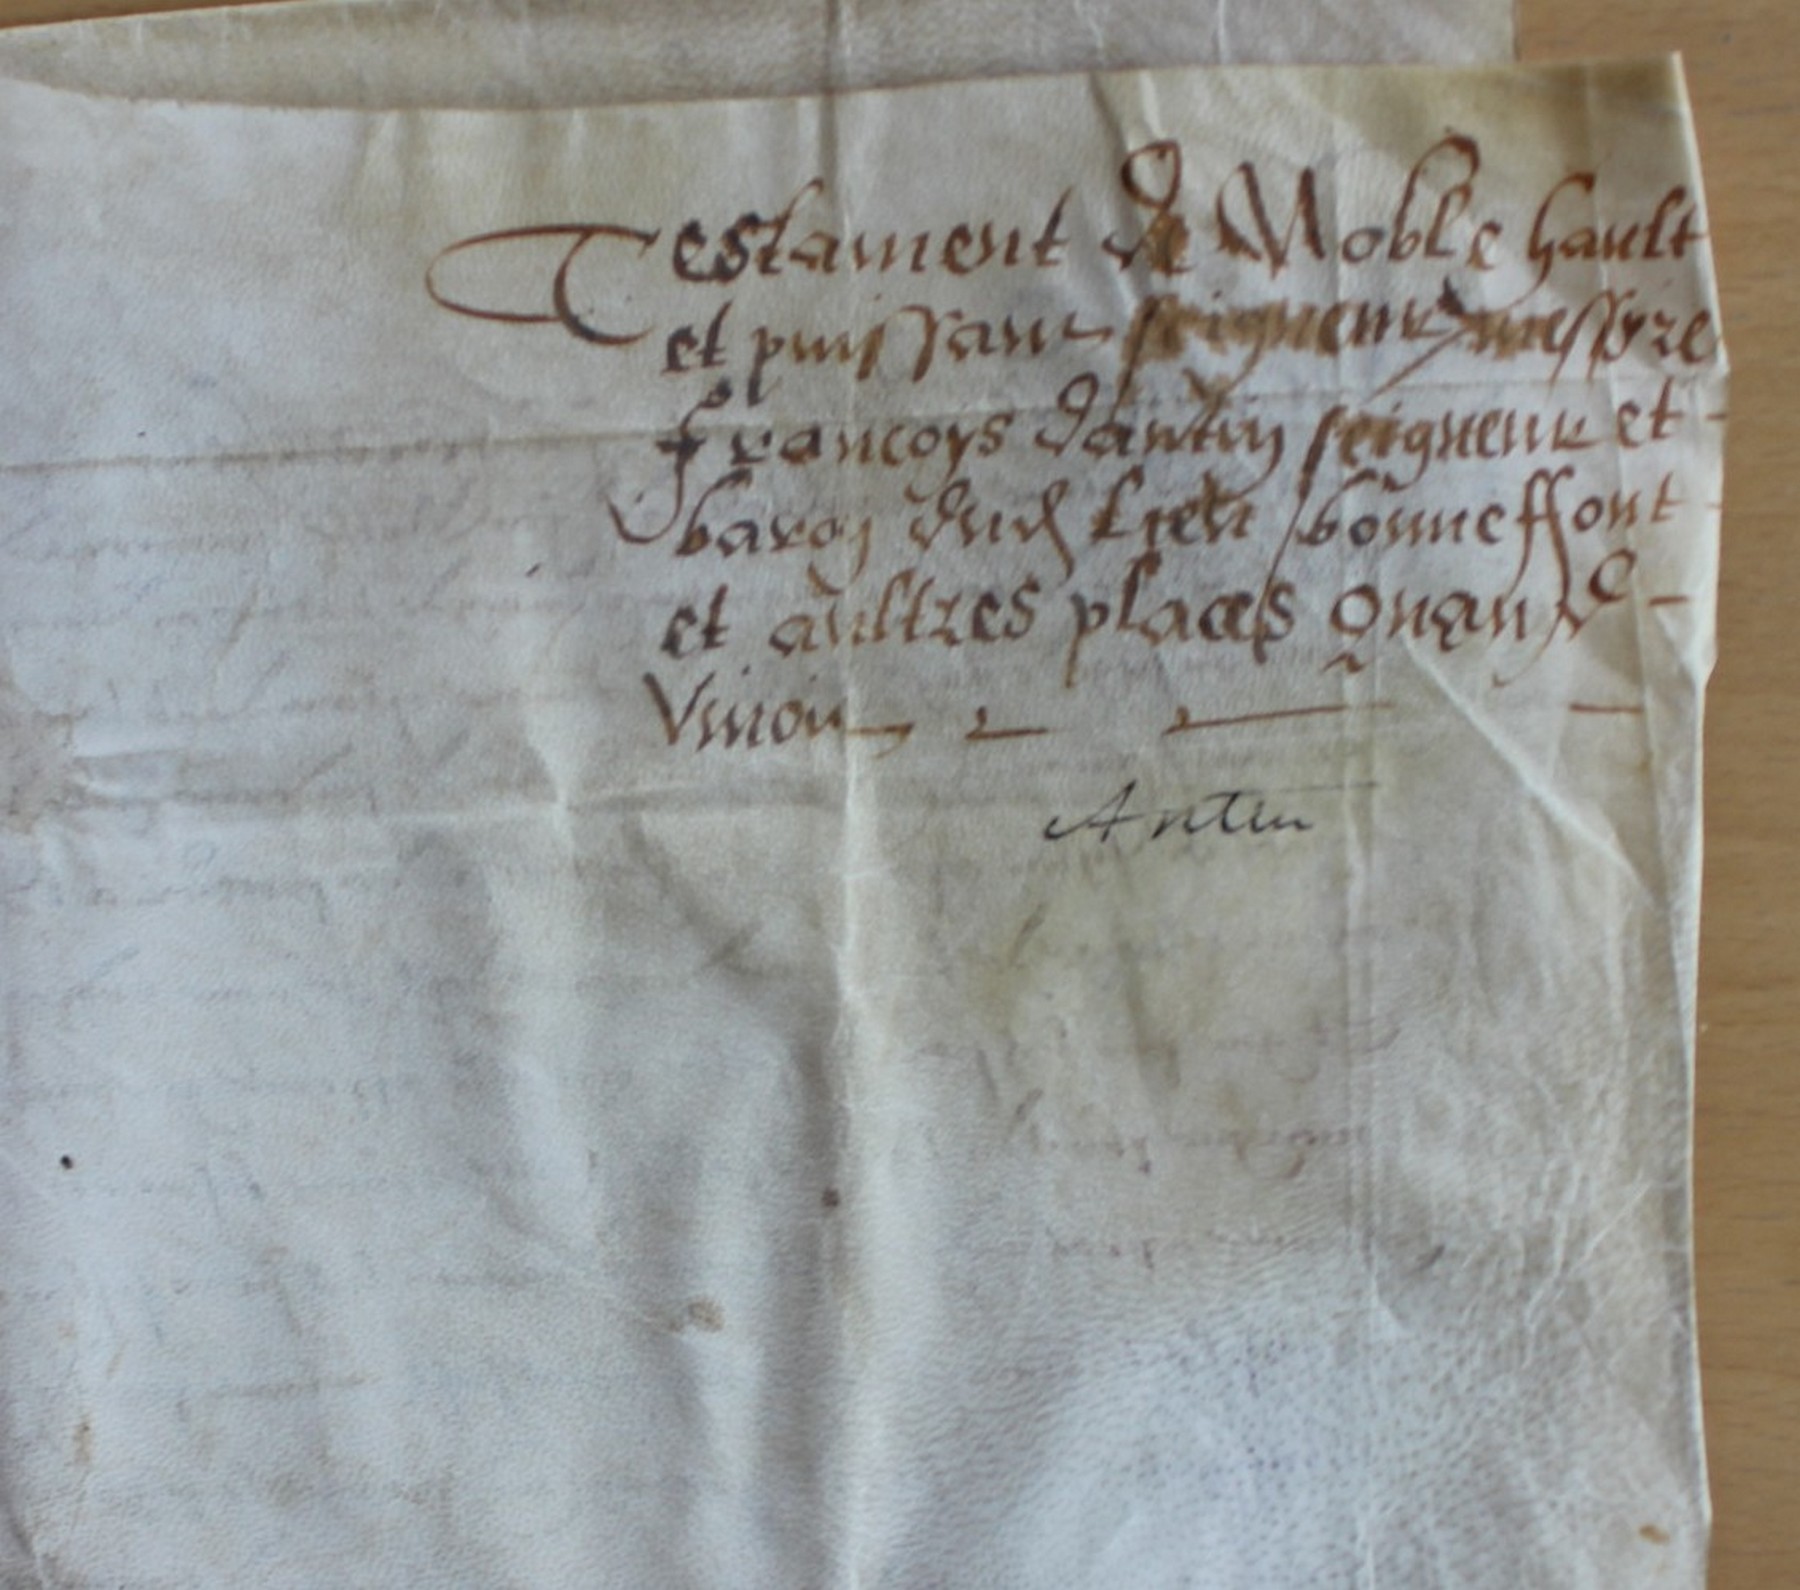 Testament de Noble hault
et puissant seigneur messyre
francoys dantin seigneur et
baron dud lieu bonneffont
et aultres places quand
vivoit
Antin